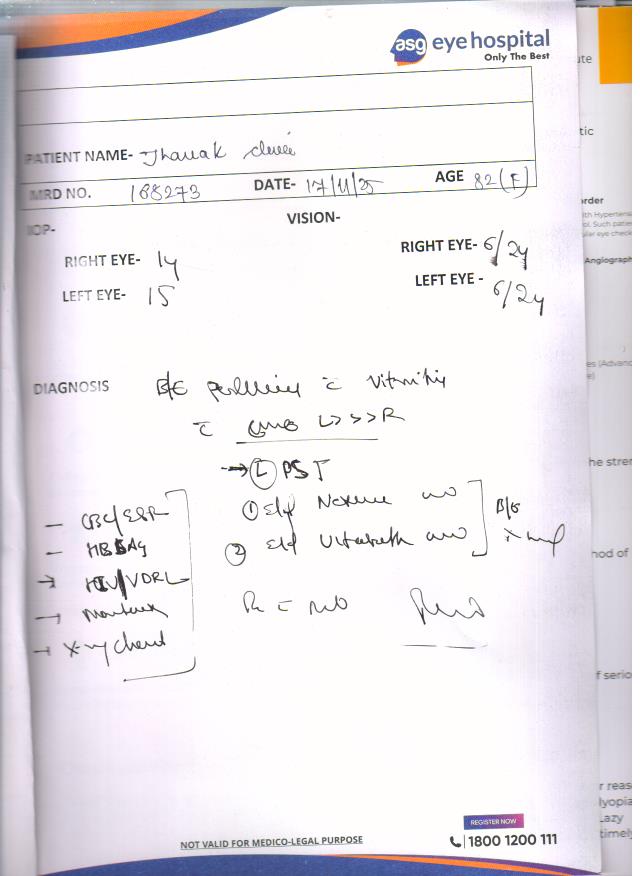 asg eye hospital
Only The Best
PATIENT NAME- Jhanak
MRD NO. 188273 DATE- 17/11/25 AGE 82 (F)
IOP- VISION-
RIGHT EYE- 14 RIGHT EYE- 6/24
LEFT EYE- 15 LEFT EYE - 6/24
DIAGNOSIS B/E c̄ Vitritis
c̄ CME L>>>R
→ (L) PST
- CBC/ESR
① E/d
- HBSAg
② E/d
B/E
→ HIV/VDRL
→ Montoux
R c̄
→ X-ray chest
REGISTER NOW
NOT VALID FOR MEDICO-LEGAL PURPOSE
1800 1200 111
ute
tic
order
ith Hypertens
ol. Such patie
ular eye check
Angiograph
es (Advanc
e)
he stren
hod of
f serio
r reas
lyopia
Lazy
timely